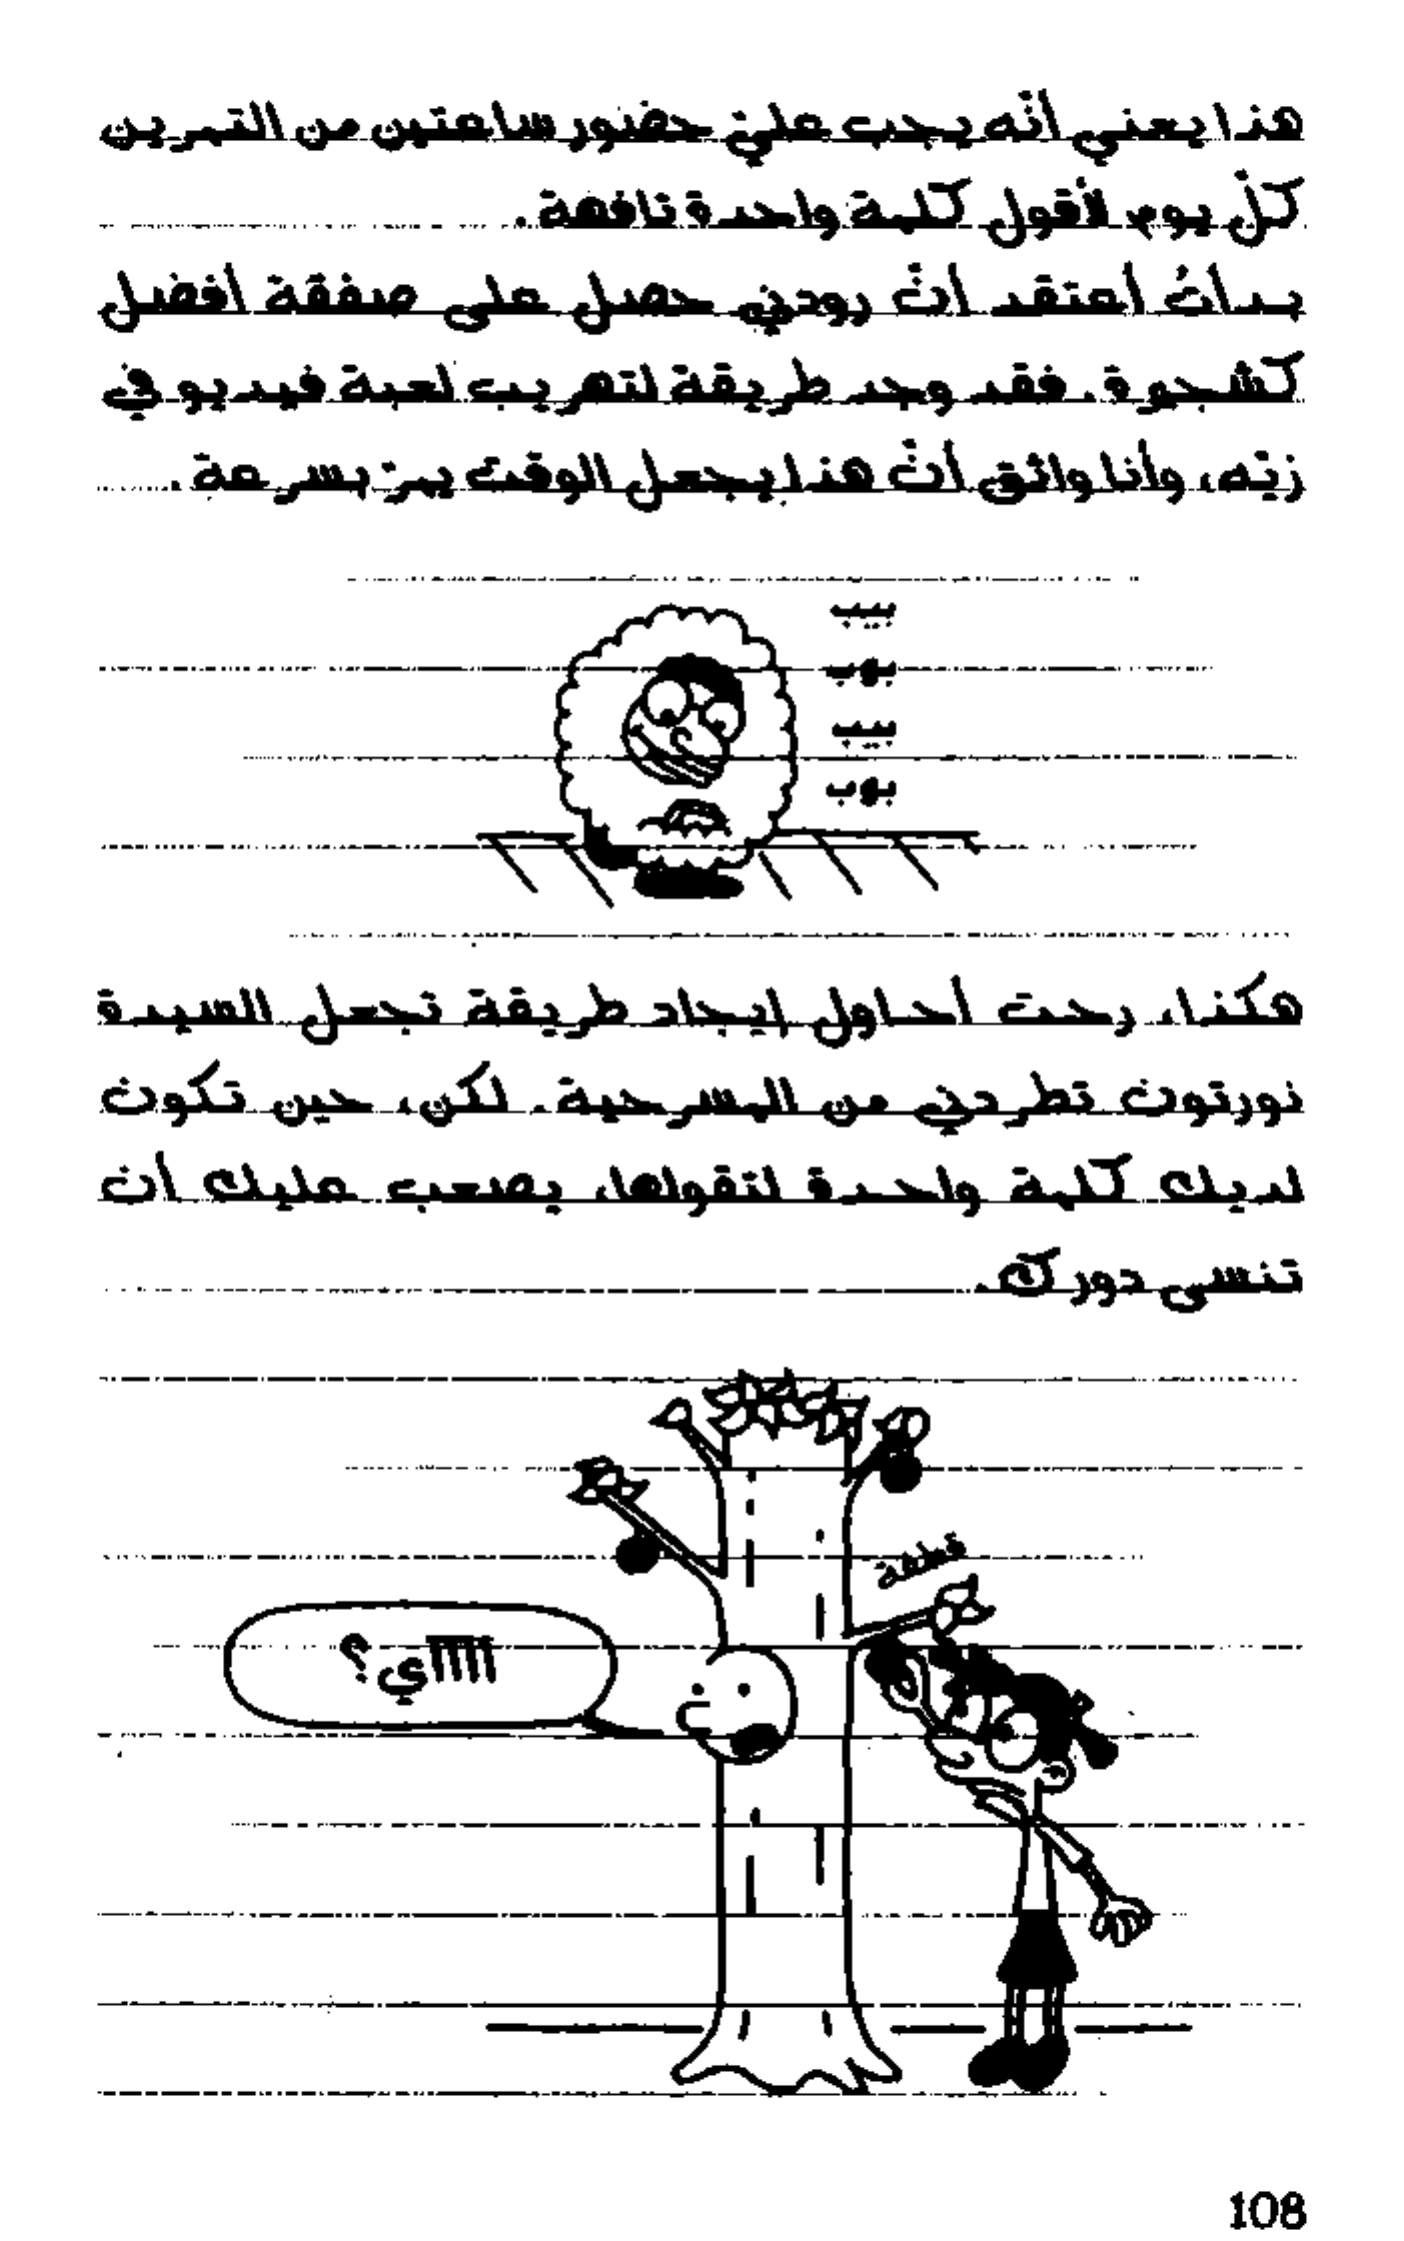 هذا يعني أنّه يجب عليّ حضور ساعتين من التمرين
كلّ يوم لأقول كلمة واحدة تافهة.
بدأتُ أعتقد أنّ رودني حصل على صفقة أفضل
كشجرة. فقد وجد طريقة لتهريب لعبة فيديو في
زيّه، وأنا واثق أنّ هذا يجعل الوقت يمرّ بسرعة.
بيب
بوب
بيب
بوب
هكذا، رحت أحاول إيجاد طريقة تجعل السيدة
نورتون تطردني من المسرحية. لكن، حين تكون
لديك كلمة واحدة لتقولها، يصعب عليك أن
تنسى دورك.
قطعة
اااااي؟
108